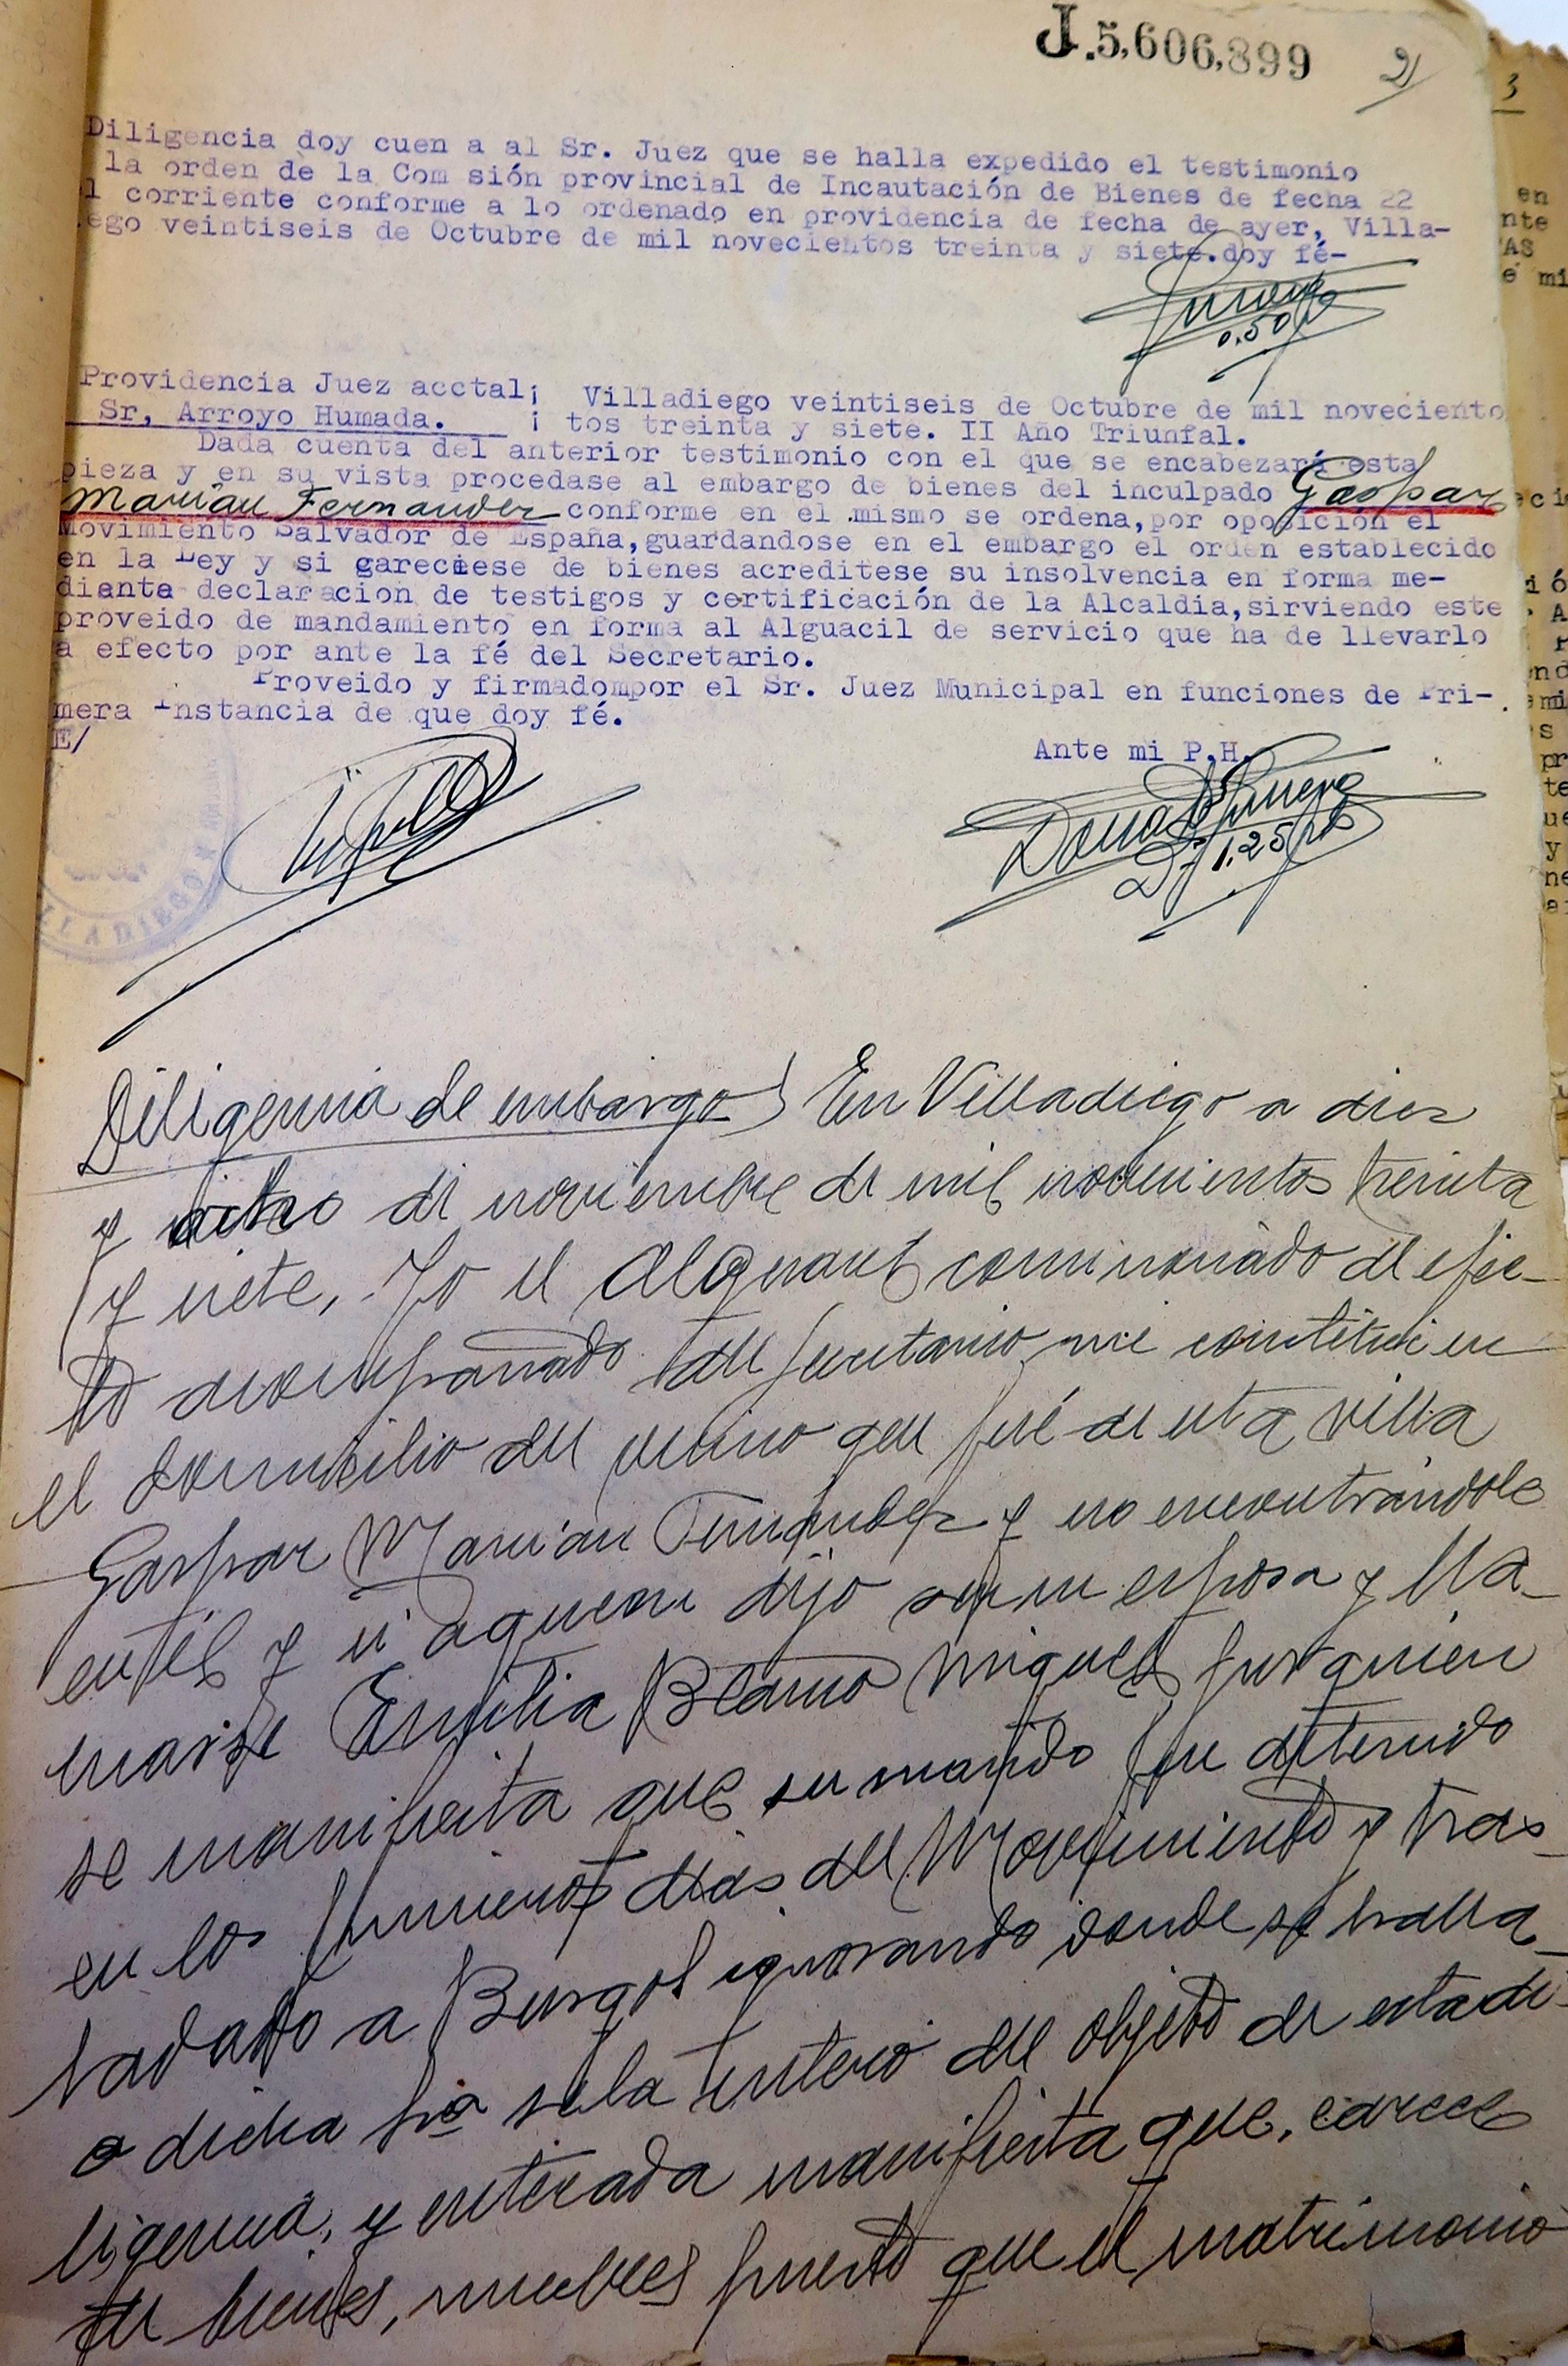 J.5,606,899
2
3
Diligencia doy cuen a al Sr. Juez que se halla expedido el testimonio
la orden de la Com sión provincial de Incautación de Bienes de fecha 22
l corriente conforme a lo ordenado en providencia de fecha de ayer, Villa-
ego veintiseis de Octubre de mil novecientos treinta y siete.doy fé-
0.50
Providencia Juez acctal; Villadiego veintiseis de Octubre de mil noveciento
Sr, Arroyo Humada. ; tos treinta y siete. II Año Triunfal.
Dada cuenta del anterior testimonio con el que se encabezará esta
pieza y en su vista procedase al embargo de bienes del inculpado Gaspar
Marian Fernandez conforme en el .mismo se ordena,por oposición el
Movimiento Salvador de España,guardandose en el embargo el orden establecido
en la Ley y si gareciese de bienes acreditese su insolvencia en forma me-
diante declaracion de testigos y certificación de la Alcaldia,sirviendo este
proveido de mandamiento en forma al Alguacil de servicio que ha de llevarlo
a efecto por ante la fé del Secretario.
Proveido y firmadompor el Sr. Juez Municipal en funciones de Pri-
mera Instancia de que doy fé.
E/
Ante mi P.H.
1,25
LLADIEGO
Diligencia de embargo) En Villadiego a diez
y ocho de noviembre de mil novecientos treinta
y siete, Yo el Alguacil comisionado al efec-
to acompañado del Secretario, me constitui en
el domicilio del vecino que fué de esta villa
Gaspar Marian Fernandez y no encontrándole
en él y si a quien dijo ser su esposa y lla-
marse Emilia Blanco Miguel, por quien
se manifiesta que su marido fue detenido
en los primeros dias del Movimiento y tras-
ladado a Burgos ignorando donde se halla
a dicha Sra se la entero del objeto de esta di-
ligencia, y enterada manifiesta que, carece
de bienes, muebles puesto que el matrimonio